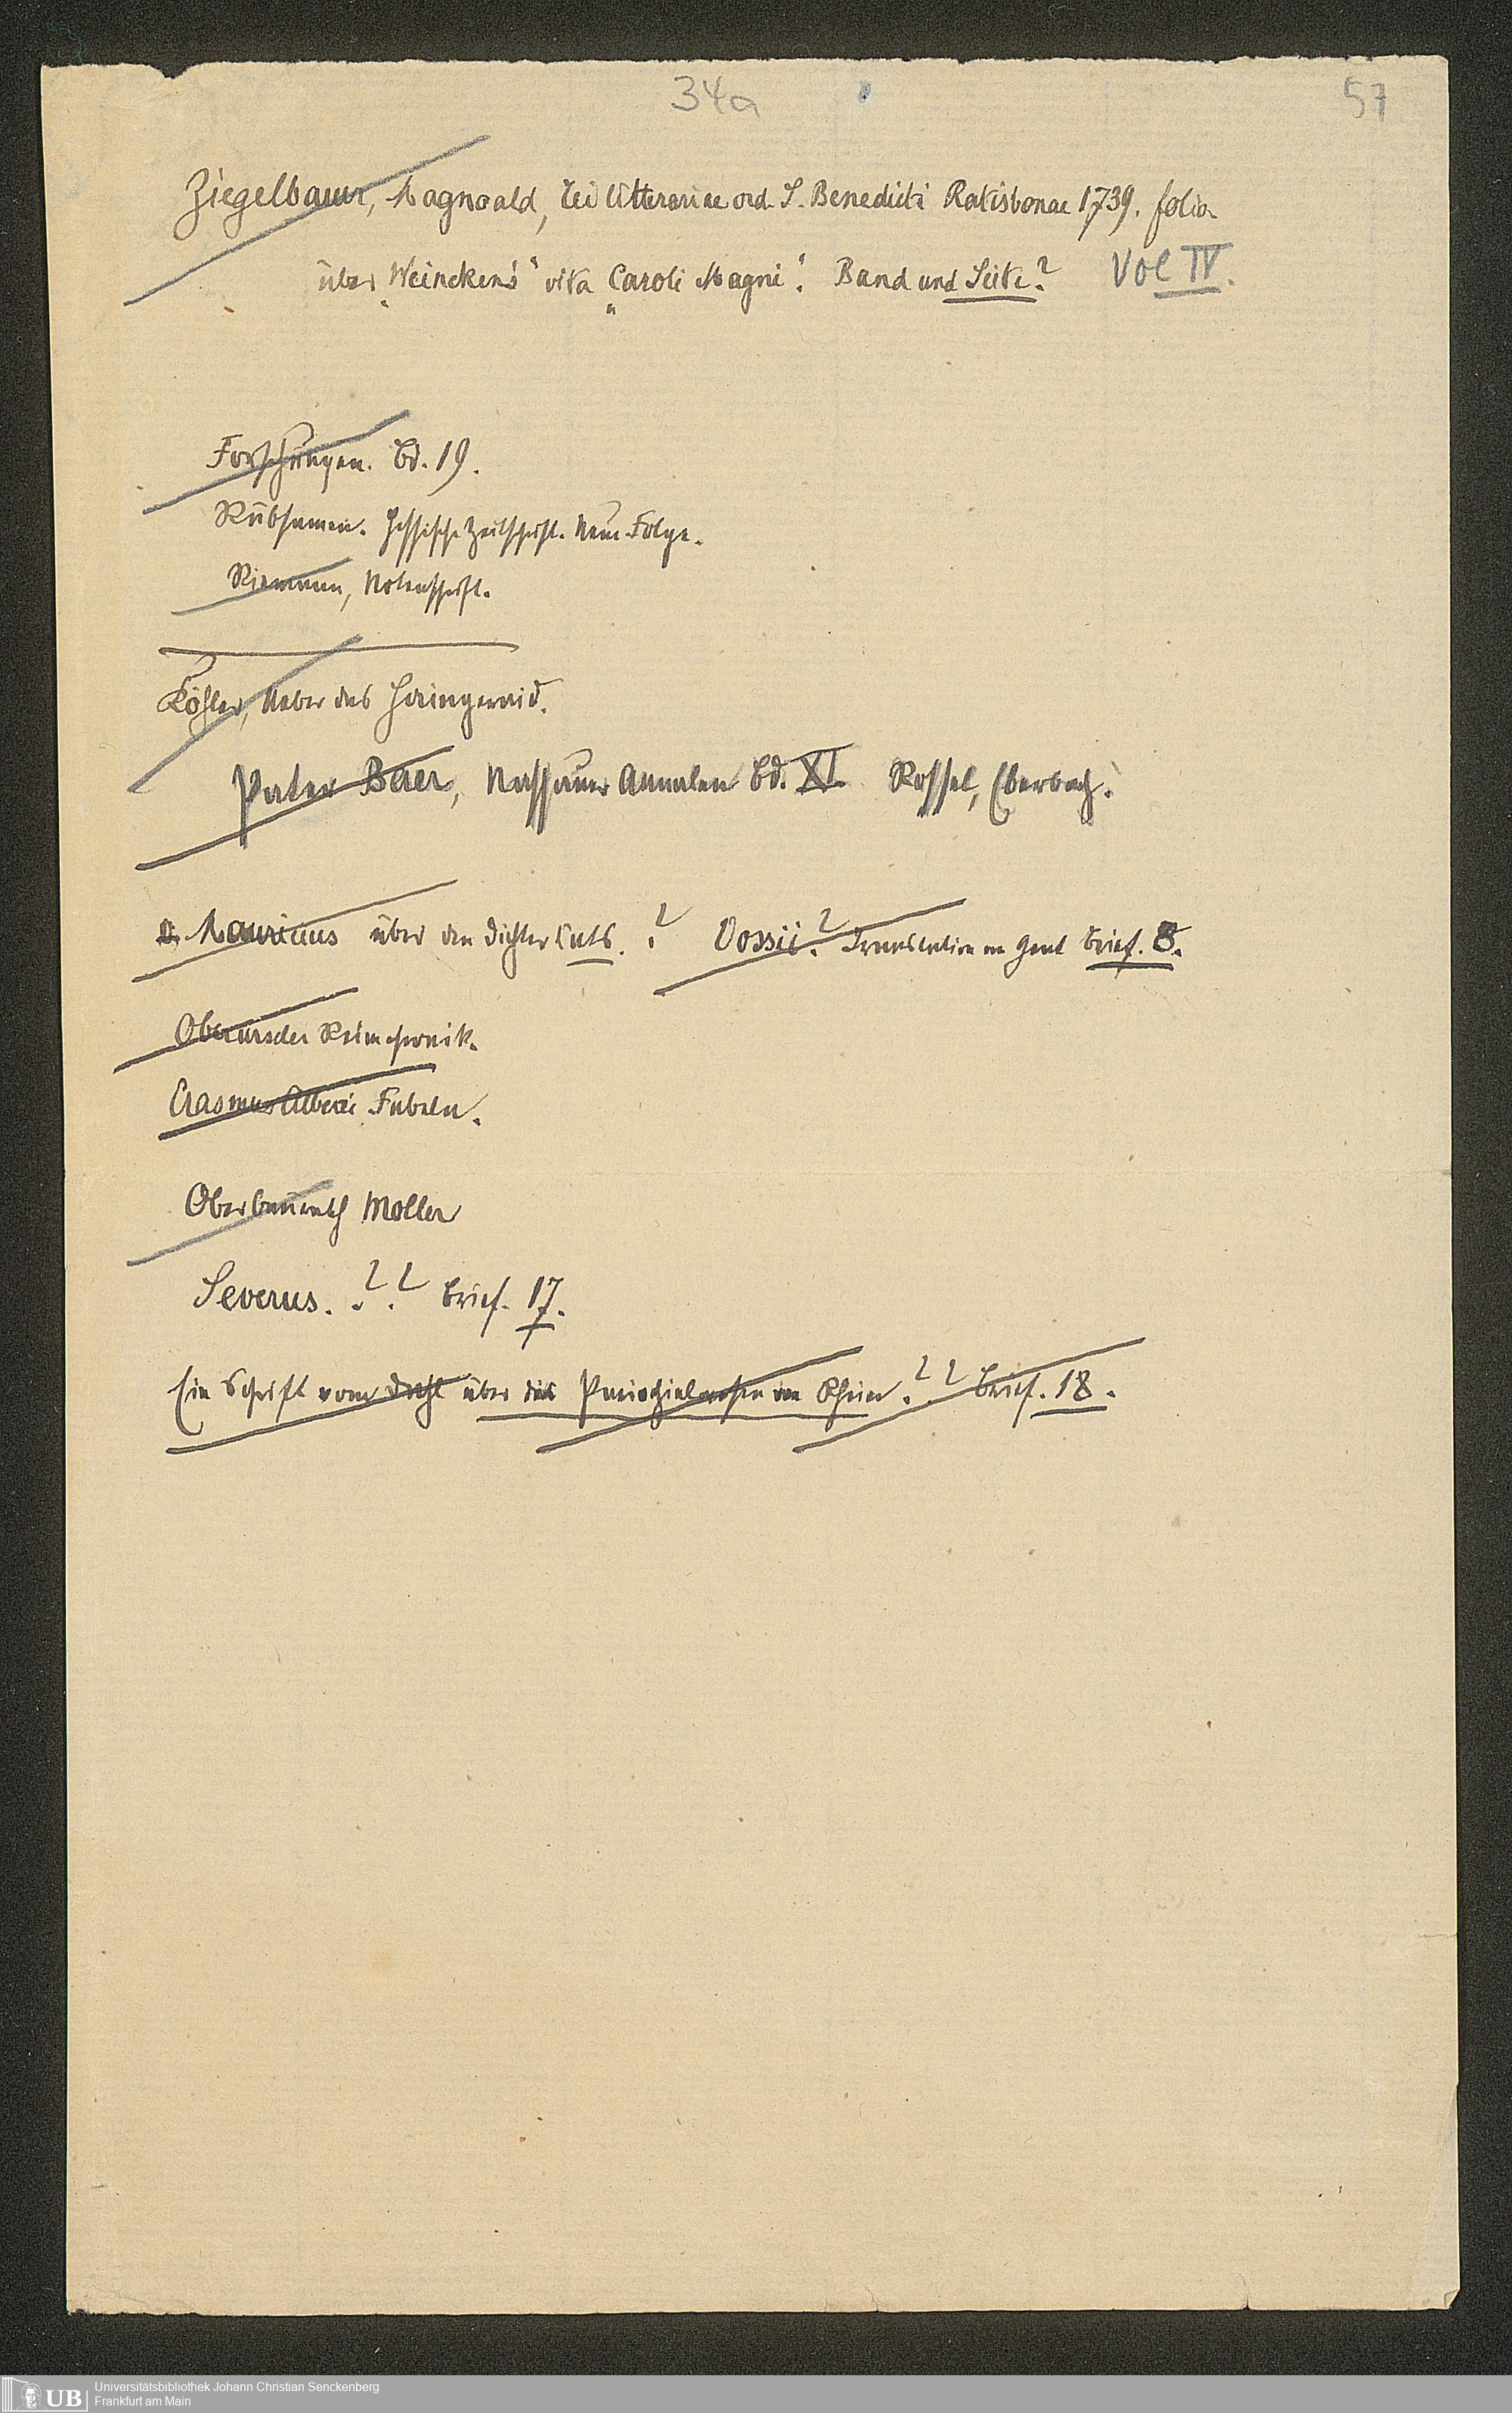 34a
57
Ziegelbaur, Magnoald, rei litterariae ord. S. Benedicti Ratisbonae 1739. folio
über „Weincken's“ vita „Caroli Magni“. Band und Seite? Vol IV.
Forschungen. Bd. 19.
Rübsamen. Hessische Zeitschrift. Neue Folge.
Riemann, Notenschrift.
Köhler, Ueber das Haingeraid.
Pater Baer, Nassauer Annalen Bd. XI. Rossel, Eberbach.
Mauricius über den Dichter ? Vossii? Translation in Gent Brief. 8.
Oberurseler Reimchronik.
Erasmus Alberi Fabeln.
Oberbaurath Moller
Severus. ?? Brief. 17.
Ein Schrift vom Dahl über das Parochialwesen am Rhein. ?? Brief. 18.
UB Universitätsbibliothek Johann Christian Senckenberg
Frankfurt am Main